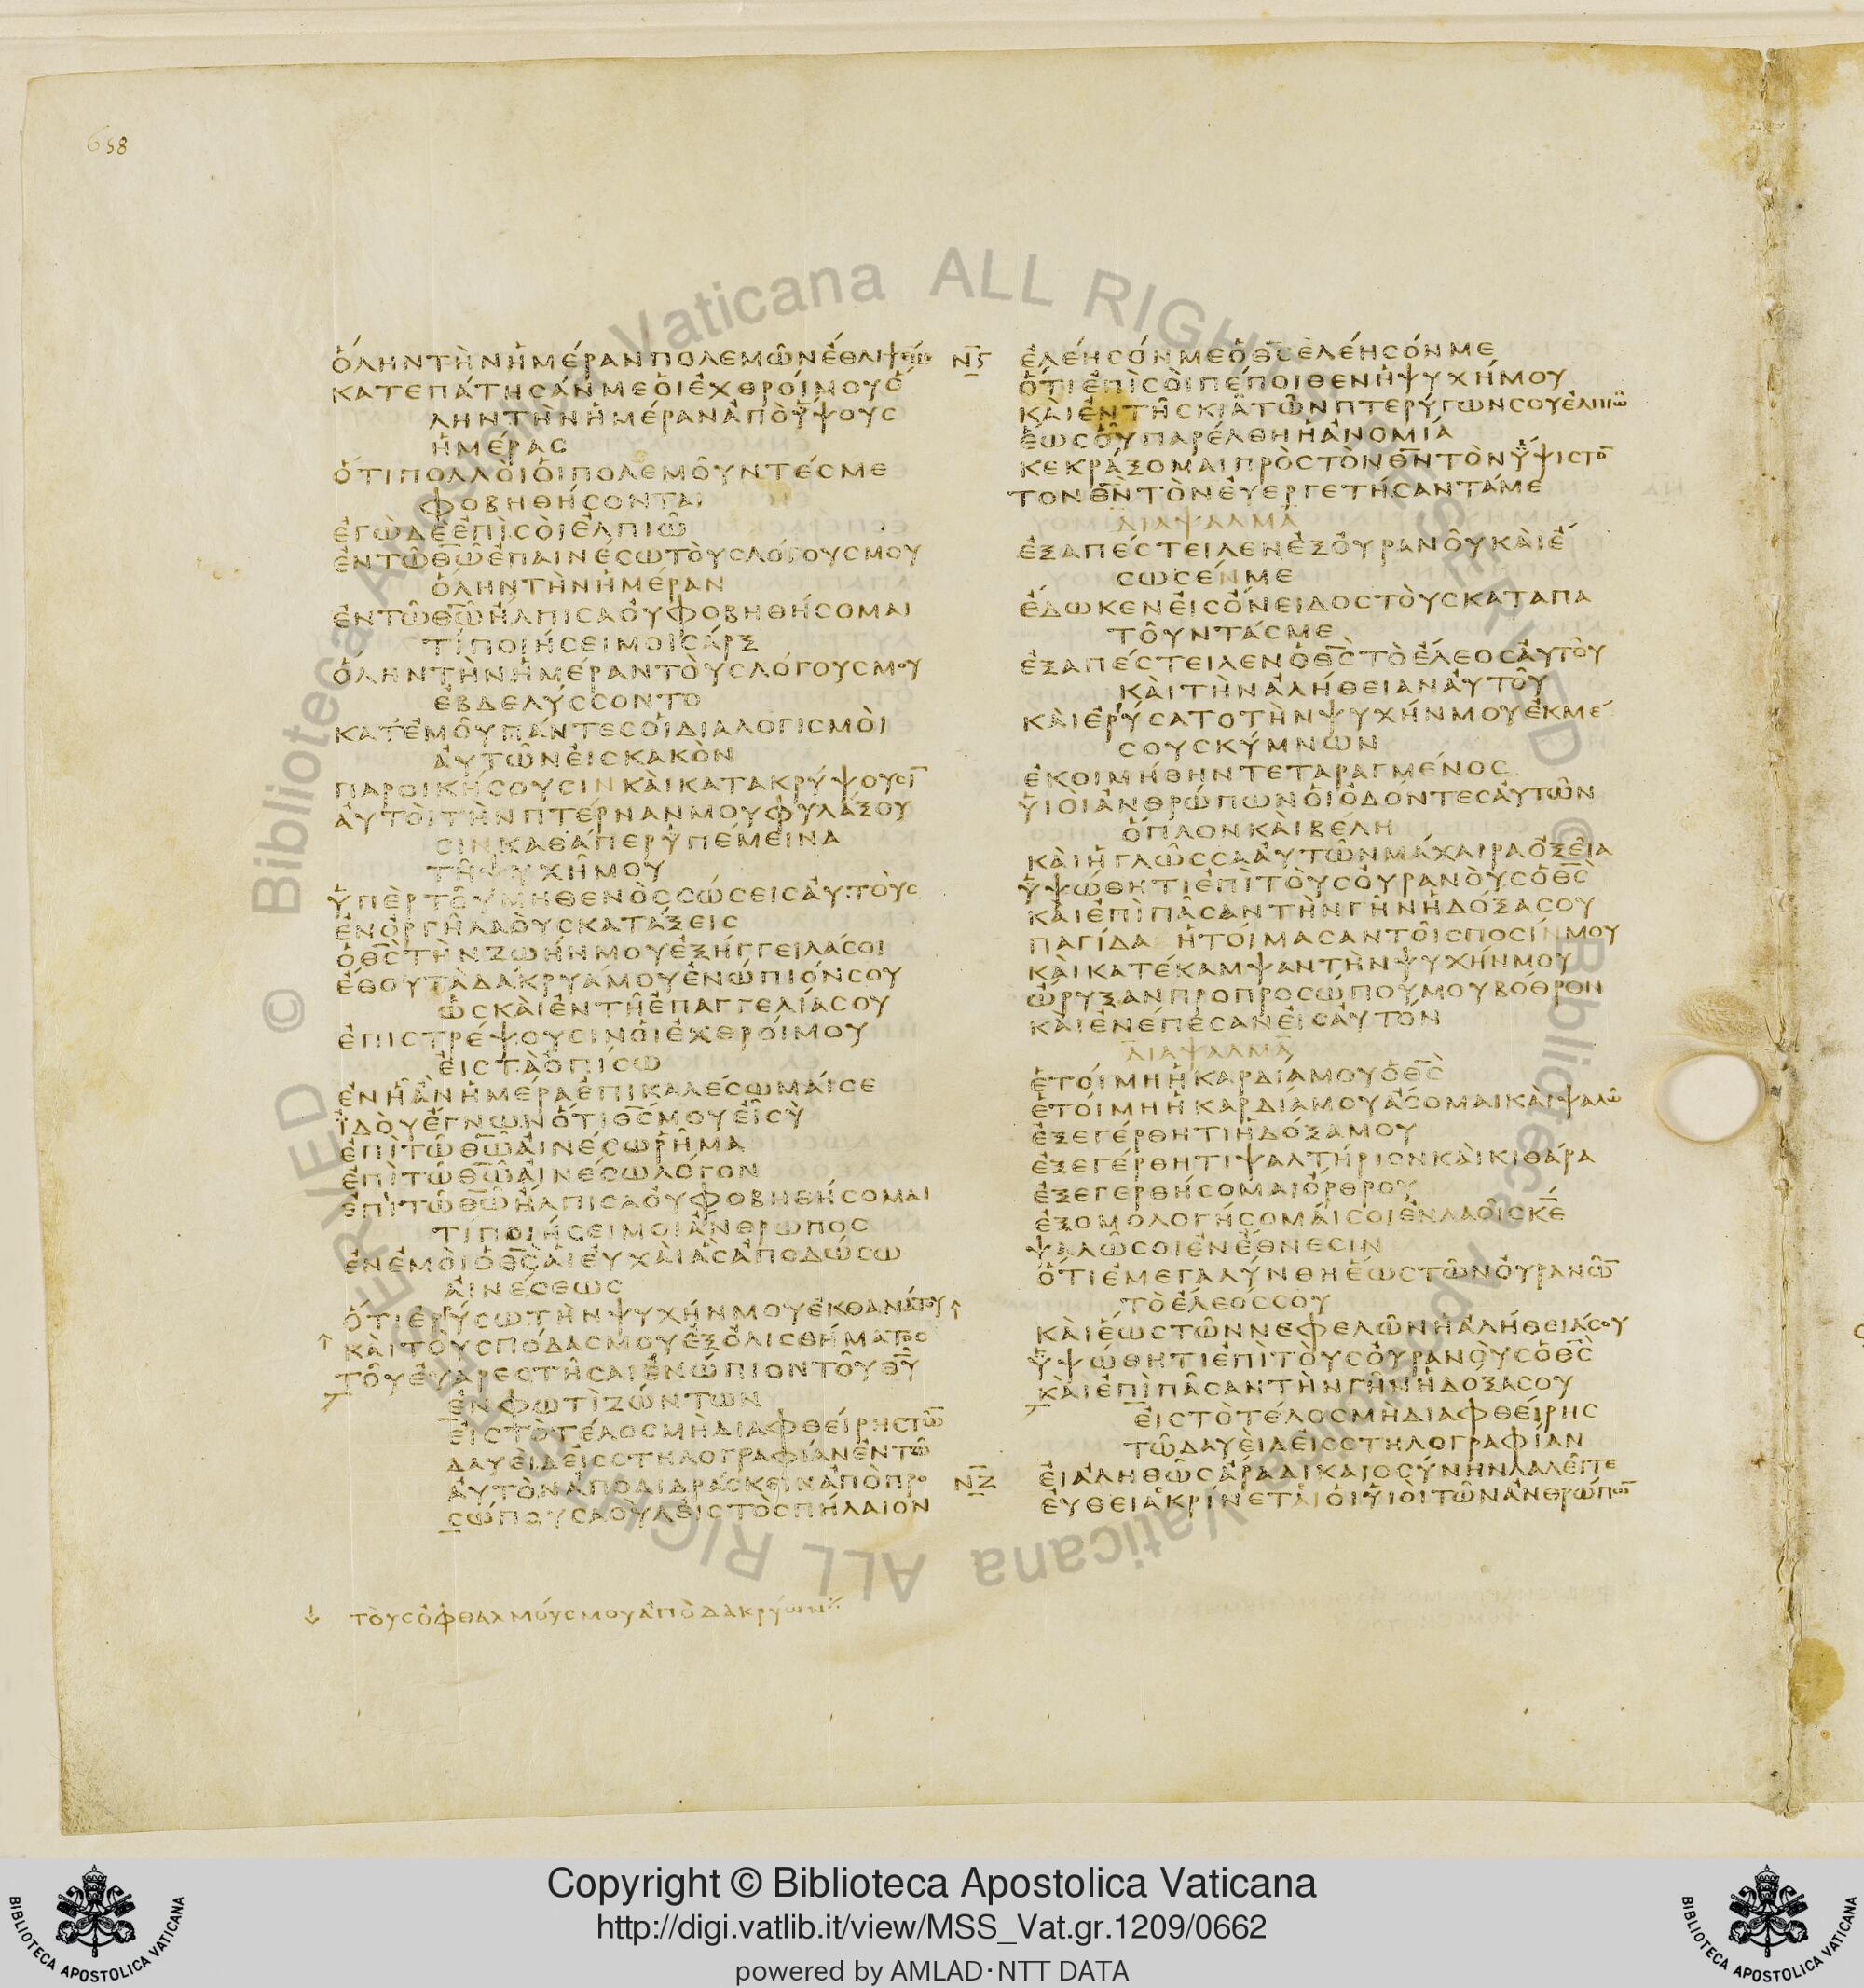 658
ὍΛΗΝΤῊΝἩΜΈΡΑΝΠΟΛΕΜῶΝἜΘΛΙψέμε
ΚΑΤΕΠΆΤΗCΆΝΜΕΟἹἘΧΘΡΟΊΜΟΥὍ
ΛΗΝΤῊΝἩΜΈΡΑΝἈΠῸὝψΟΥC
ἩΜΈΡΑC
ὍΤΙΠΟΛΛΟῚΟἹΠΟΛΕΜΟΥ͂ΝΤΈCΜΕ
ΦΟΒΗΘΉCΟΝΤΑΙ
ἘΓῺΔῈἘΠῚCΟῚἘΛΠΙῶ
ἘΝΤῶΘ̅ῶἘΠΑΙΝΈCΩΤΟῪCΛΌΓΟΥCΜΟΥ
ὍΛΗΝΤῊΝἩΜΈΡΑΝ
ἘΝΤῶΘ̅ῶἬΛΠΙCΑΟὐΦΟΒΗΘΉCΟΜΑΙ
ΤΊΠΟΙΉCΕΙΜΟΙCΆΡΞ
ὍΛΗΝΤῊΝἩΜΈΡΑΝΤΟῪCΛΌΓΟΥCΜΟΥ
ἘΒΔΕΛΎCCΟΝΤΟ
ΚΑΤἘΜΟΥ͂ΠΆΝΤΕCΟἹΔΙΑΛΟΓΙCΜΟῚ
ΑὐΤῶΝΕἸCΚΑΚῸΝ
ΠΑΡΟΙΚΉCΟΥCΙΝΚΑῚΚΑΤΑΚΡΎψΟΥCΙ̅
ΑὐΤΟῚΤῊΝΠΤΈΡΝΑΝΜΟΥΦΥΛΆΞΟΥ
CΙΝΚΑΘΆΠΕΡὙΠΈΜΕΙΝΑ
ΤΗ͂ψΥΧΗ͂ΜΟΥ
ὙΠῈΡΤΟΥ͂ΜΗΘΕΝῸCCΏCΕΙCΑὐΤΟῪC
ἘΝὈΡΓΗ͂ΛΑΟῪCΚΑΤΆΞΕΙC
ὉΘ̅C̅ΤῊΝΖΩΉΝΜΟΥἘΞΉΓΓΕΙΛΆCΟΙ
ἜΘΟΥΤᾺΔΆΚΡΥΆΜΟΥἘΝΏΠΙΌΝCΟΥ
ὩCΚΑῚἘΝΤΗ͂ἘΠΑΓΓΕΛΊΑCΟΥ
ἘΠΙCΤΡΈψΟΥCΙΝΟἹἘΧΘΡΟΊΜΟΥ
ΕἸCΤᾺὈΠΊCΩ
ἘΝΗ͂ἊΝἩΜΈΡΑἘΠΙΚΑΛΈCΩΜΑΊCΕ
ἸΔΟῪἜΓΝΩΝὍΤΙΘ̅C̅ΜΟΥΕἾCῪ
ἘΠῚΤῶΘ̅ῶΑἸΝΈCΩΡΗ͂ΜΑ
ἘΠῚΤῶΘ̅ῶΑἸΝΈCΩΛΌΓΟΝ
ἘΠῚΤῶΘ̅ῶἬΛΠΙCΑΟὐΦΟΒΗΘΉCΟΜΑΙ
ΤΊΠΟΙΉCΕΙΜΟΙἌΝΘΡΩΠΟC
ἘΝἘΜΟῚὉΘ̅C̅ΑἹΕὐΧΑῚἋCἈΠΟΔΏCΩ
ΑἸΝΈCΕΩC
ὍΤΙἘΡΎCΩΤῊΝψΥΧΉΝΜΟΥἘΚΘΑΝΆΤΟΥ↑
↑ ΚΑῚΤΟῪCΠΌΔΑCΜΟΥἘΞὈΛΙCΘΉΜΑΤΟC
ΤΟΥ͂ΕὐΑΡΕCΤΗ͂CΑΙἘΝΏΠΙΟΝΤΟΥ͂Θ̅Υ̅
ἘΝΦΩΤῚΖΏΝΤΩΝ
ΕἸCΤῸΤΈΛΟCΜῊΔΙΑΦΘΕΊΡΗCΤῶ
ΔΑΥΕῚΔΕἸCCΤΗΛΟΓΡΑΦΊΑΝἘΝΤῶ
ΑὐΤῸΝἈΠΟΔΙΔΡΆCΚΕΙΝἈΠῸΠΡΟ
CΏΠΟΥCΑΟῪΛΕἸCΤῸCΠΉΛΑΙΟΝ
↓ ΤΟῪCὈΦΘΑΛΜΟΎCΜΟΥἈΠῸΔΑΚΡΎΩΝ
Ν̅Ϛ̅ ἘΛΈΗCΌΝΜΕὉΘ̅C̅ἘΛΈΗCΌΝΜΕ
ὍΤΙἘΠῚCΟῚΠΈΠΟΙΘΕΝἩψΥΧΉΜΟΥ
ΚΑῚἘΝΤΗ͂CΚΙᾶΤῶΝΠΤΕΡΎΓΩΝCΟΥἘΛΠΙῶ
ἝΩCΟὟΠΑΡΈΛΘΗἩἈΝΟΜΊΑ
ΚΕΚΡΆΞΟΜΑΙΠΡῸCΤῸΝΘ̅Ν̅ΤῸΝὝψΙCΤΟ̅
ΤΟΝΘ̅Ν̅ΤῸΝΕὐΕΡΓΕΤΉCΑΝΤΆΜΕ
ΔΙΑψΑΛΜΑ
ἘΞΑΠΈCΤΕΙΛΕΝἘΞΟὐΡΑΝΟΥ͂ΚΑῚἜ
CΩCΈΝΜΕ
ἜΔΩΚΕΝΕἸCὌΝΕΙΔΟCΤΟῪCΚΑΤΑΠΑ
ΤΟΥ͂ΝΤΆCΜΕ
ἘΞΑΠΈCΤΕΙΛΕΝὉΘ̅C̅ΤῸἜΛΕΟCΑὐΤΟΥ
ΚΑῚΤῊΝἈΛΉΘΕΙΑΝΑὐΤΟΥ͂
ΚΑῚἘΡΎCΑΤΟΤῊΝψΥΧΉΝΜΟΥἘΚΜΈ
CΟΥCΚΎΜΝΩΝ
ἘΚΟΙΜΉΘΗΝΤΕΤΑΡΑΓΜΈΝΟC
ὙΙΟῚἈΝΘΡΏΠΩΝΟἹὈΔΟΝΤΕCΑὐΤῶΝ
ὍΠΛΟΝΚΑῚΒΈΛΗ
ΚΑῚἩΓΛῶCCΑΑὐΤῶΝΜΆΧΑΙΡΑὈΞΕΙ͂Α
ὙψΏΘΗΤΙἘΠῚΤΟῪCΟὐΡΑΝΟῪCὉΘ̅C̅
ΚΑῚἘΠῚΠᾶCΑΝΤῊΝΓΗ͂ΝἩΔΌΞΑCΟΥ
ΠΑΓΊΔΑ ἩΤΟΊΜΑCΑΝΤΟΙ͂CΠΟCΊΝΜΟΥ
ΚΑῚΚΑΤΈΚΑΜψΑΝΤῊΝψΥΧΉΝΜΟΥ
ὬΡΥΞΑΝΠΡΟΠΡΟCΏΠΟΥΜΟΥΒΌΘΡΟΝ
ΚΑῚἘΝΈΠΕCΑΝΕἸCΑὐΤΟΝ
ΔΙΑψΑΛΜΑ
ἙΤΟΊΜΗἩΚΑΡΔΊΑΜΟΥὉΘ̅C̅
ἙΤΟΊΜΗἩΚΑΡΔΊΑΜΟΥἌCΟΜΑΙΚΑῚψΑΛῶ
ἘΞΕΓΈΡΘΗΤΙἩΔΌΞΑΜΟΥ
ἘΞΕΓΈΡΘΗΤΙψΑΛΤΉΡΙΟΝΚΑῚΚΙΘΆΡΑ
ἘΞΕΓΕΡΘΉCΟΜΑΙὌΡΘΡΟΥ
ἘΞΟΜΟΛΟΓΉCΟΜΑΊCΟΙἘΝΛΑΟΙ͂CΚ̅Ε̅
ψΑΛῶCΟΙἘΝἜΘΝΕCΙΝ
ὍΤΙἘΜΕΓΑΛΎΝΘΗἝΩCΤῶΝΟὐΡΑΝῶ̅
ΤῸἜΛΕΌCCΟΥ
ΚΑῚἝΩCΤῶΝΝΕΦΕΛῶΝἩἈΛΉΘΕΙΆCΟΥ
ὙψΏΘΗΤΙἘΠῚΤΟῪCΟὐΡΑΝΟῪCὉΘ̅C̅
ΚΑῚἘΠῚΠᾶCΑΝΤῊΝΓΗ͂ΝἩΔΟΞΑCΟΥ
ΕἸCΤῸΤΈΛΟCΜῊΔΙΑΦΘΕΊΡΗC
ΤῶΔΑΥΕῚΔΕἸCCΤΗΛΟΓΡΑΦΊΑΝ
Ν̅Ζ̅ ΕἸἈΛΗΘῶCἌΡΑΔΙΚΑΙΟCΎΝΗΝΛΑΛΕΙ͂ΤΕ
ΕὐΘΕΙΑΚΡΊΝΕΤΑΙΟἹὙΙΟΙΤῶΝἈΝΘΡΏΠΩ̅
© Biblioteca Apostolica Vaticana ALL RIGHTS RESERVED
Copyright © Biblioteca Apostolica Vaticana
http://digi.vatlib.it/view/MSS_Vat.gr.1209/0662
powered by AMLAD·NTT DATA
BIBLIOTECA APOSTOLICA VATICANA
BIBLIOTECA APOSTOLICA VATICANA